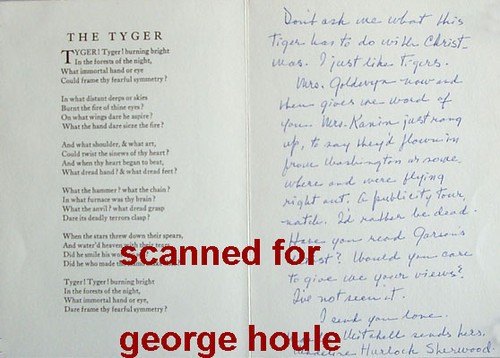 THE TYGER
TYGER! Tyger! burning bright
In the forests of the night,
What immortal hand or eye
Could frame thy fearful symmetry?
In what distant deeps or skies
Burnt the fire of thine eyes?
On what wings dare he aspire?
What the hand dare sieze the fire?
And what shoulder, & what art,
Could twist the sinews of thy heart?
And when thy heart began to beat,
What dread hand? & what dread feet?
What the hammer? what the chain?
In what furnace was thy brain?
What the anvil? what dread grasp
Dare its deadly terrors clasp?
When the stars threw down their spears,
And water'd heaven with their tears,
Did he smile his
Did he who made the
Tyger! Tyger! burning bright
In the forests of the night,
What immortal hand or eye,
Dare frame thy fearful symmetry?
Don't ask me what this
tiger has to do with Christ-
mas. I just like tigers.
Mrs. Goldwyn now and
then gives me word of
you. Mrs. Kanin just rang
up, to say they'd flown in
from Washington or some
where and were flying
right out. A publicity tour,
natch. I'd rather be dead.
Have you read Garson's
Would you care
to give me your views?
I've not seen it.
I send you love.
Mitchell sends hers.
Madeline Hurlock Sherwood
scanned for
george houle